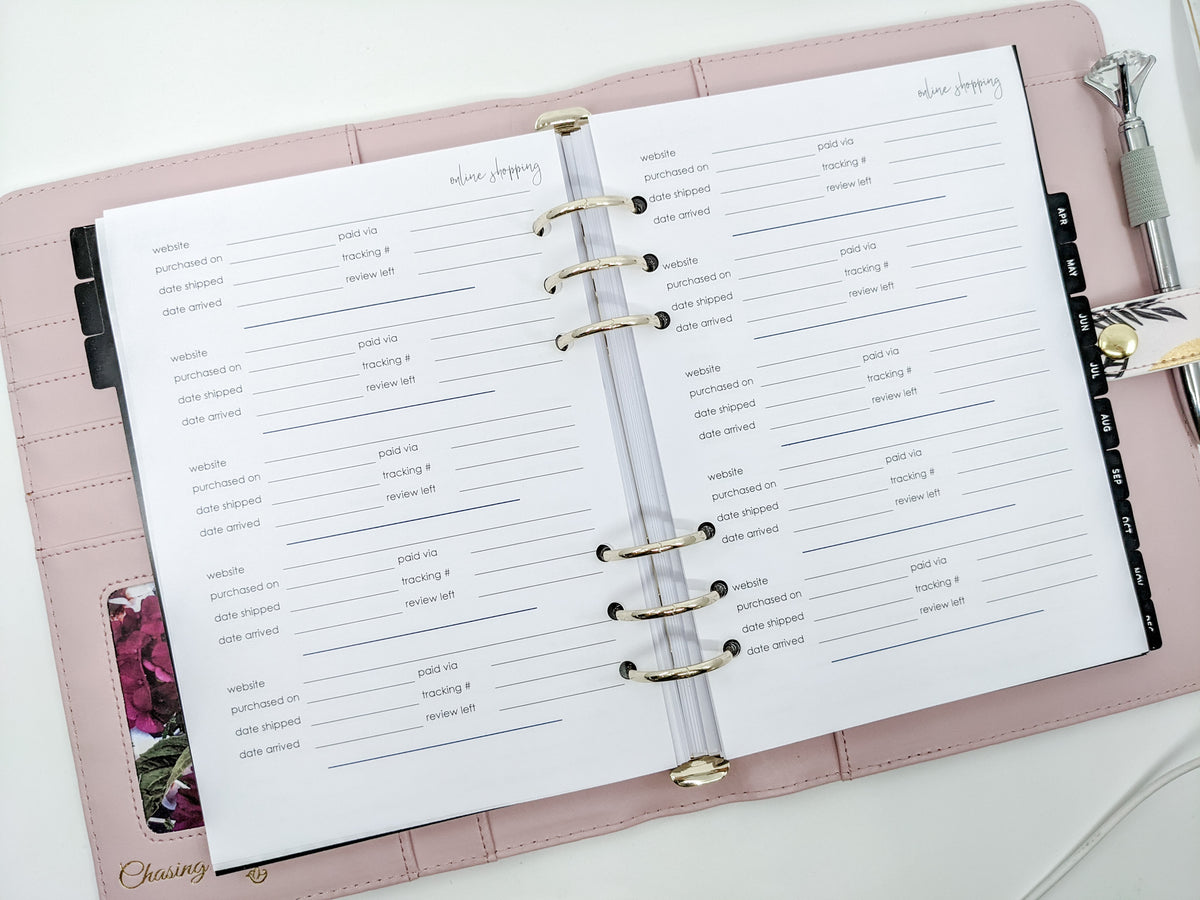 online shopping
website
purchased on paid via
date shipped tracking #
date arrived review left
website
purchased on paid via
date shipped tracking #
date arrived review left
website
purchased on paid via
date shipped tracking #
date arrived review left
website
purchased on paid via
date shipped tracking #
date arrived review left
website
purchased on paid via
date shipped tracking #
date arrived review left
Chasing
online shopping
website
purchased on paid via
date shipped tracking #
date arrived review left
website
purchased on paid via
date shipped tracking #
date arrived review left
website
purchased on paid via
date shipped tracking #
date arrived review left
website
purchased on paid via
date shipped tracking #
date arrived review left
website
purchased on paid via
date shipped tracking #
date arrived review left
APR
MAY
JUN
JUL
AUG
SEP
OCT
NOV
DEC